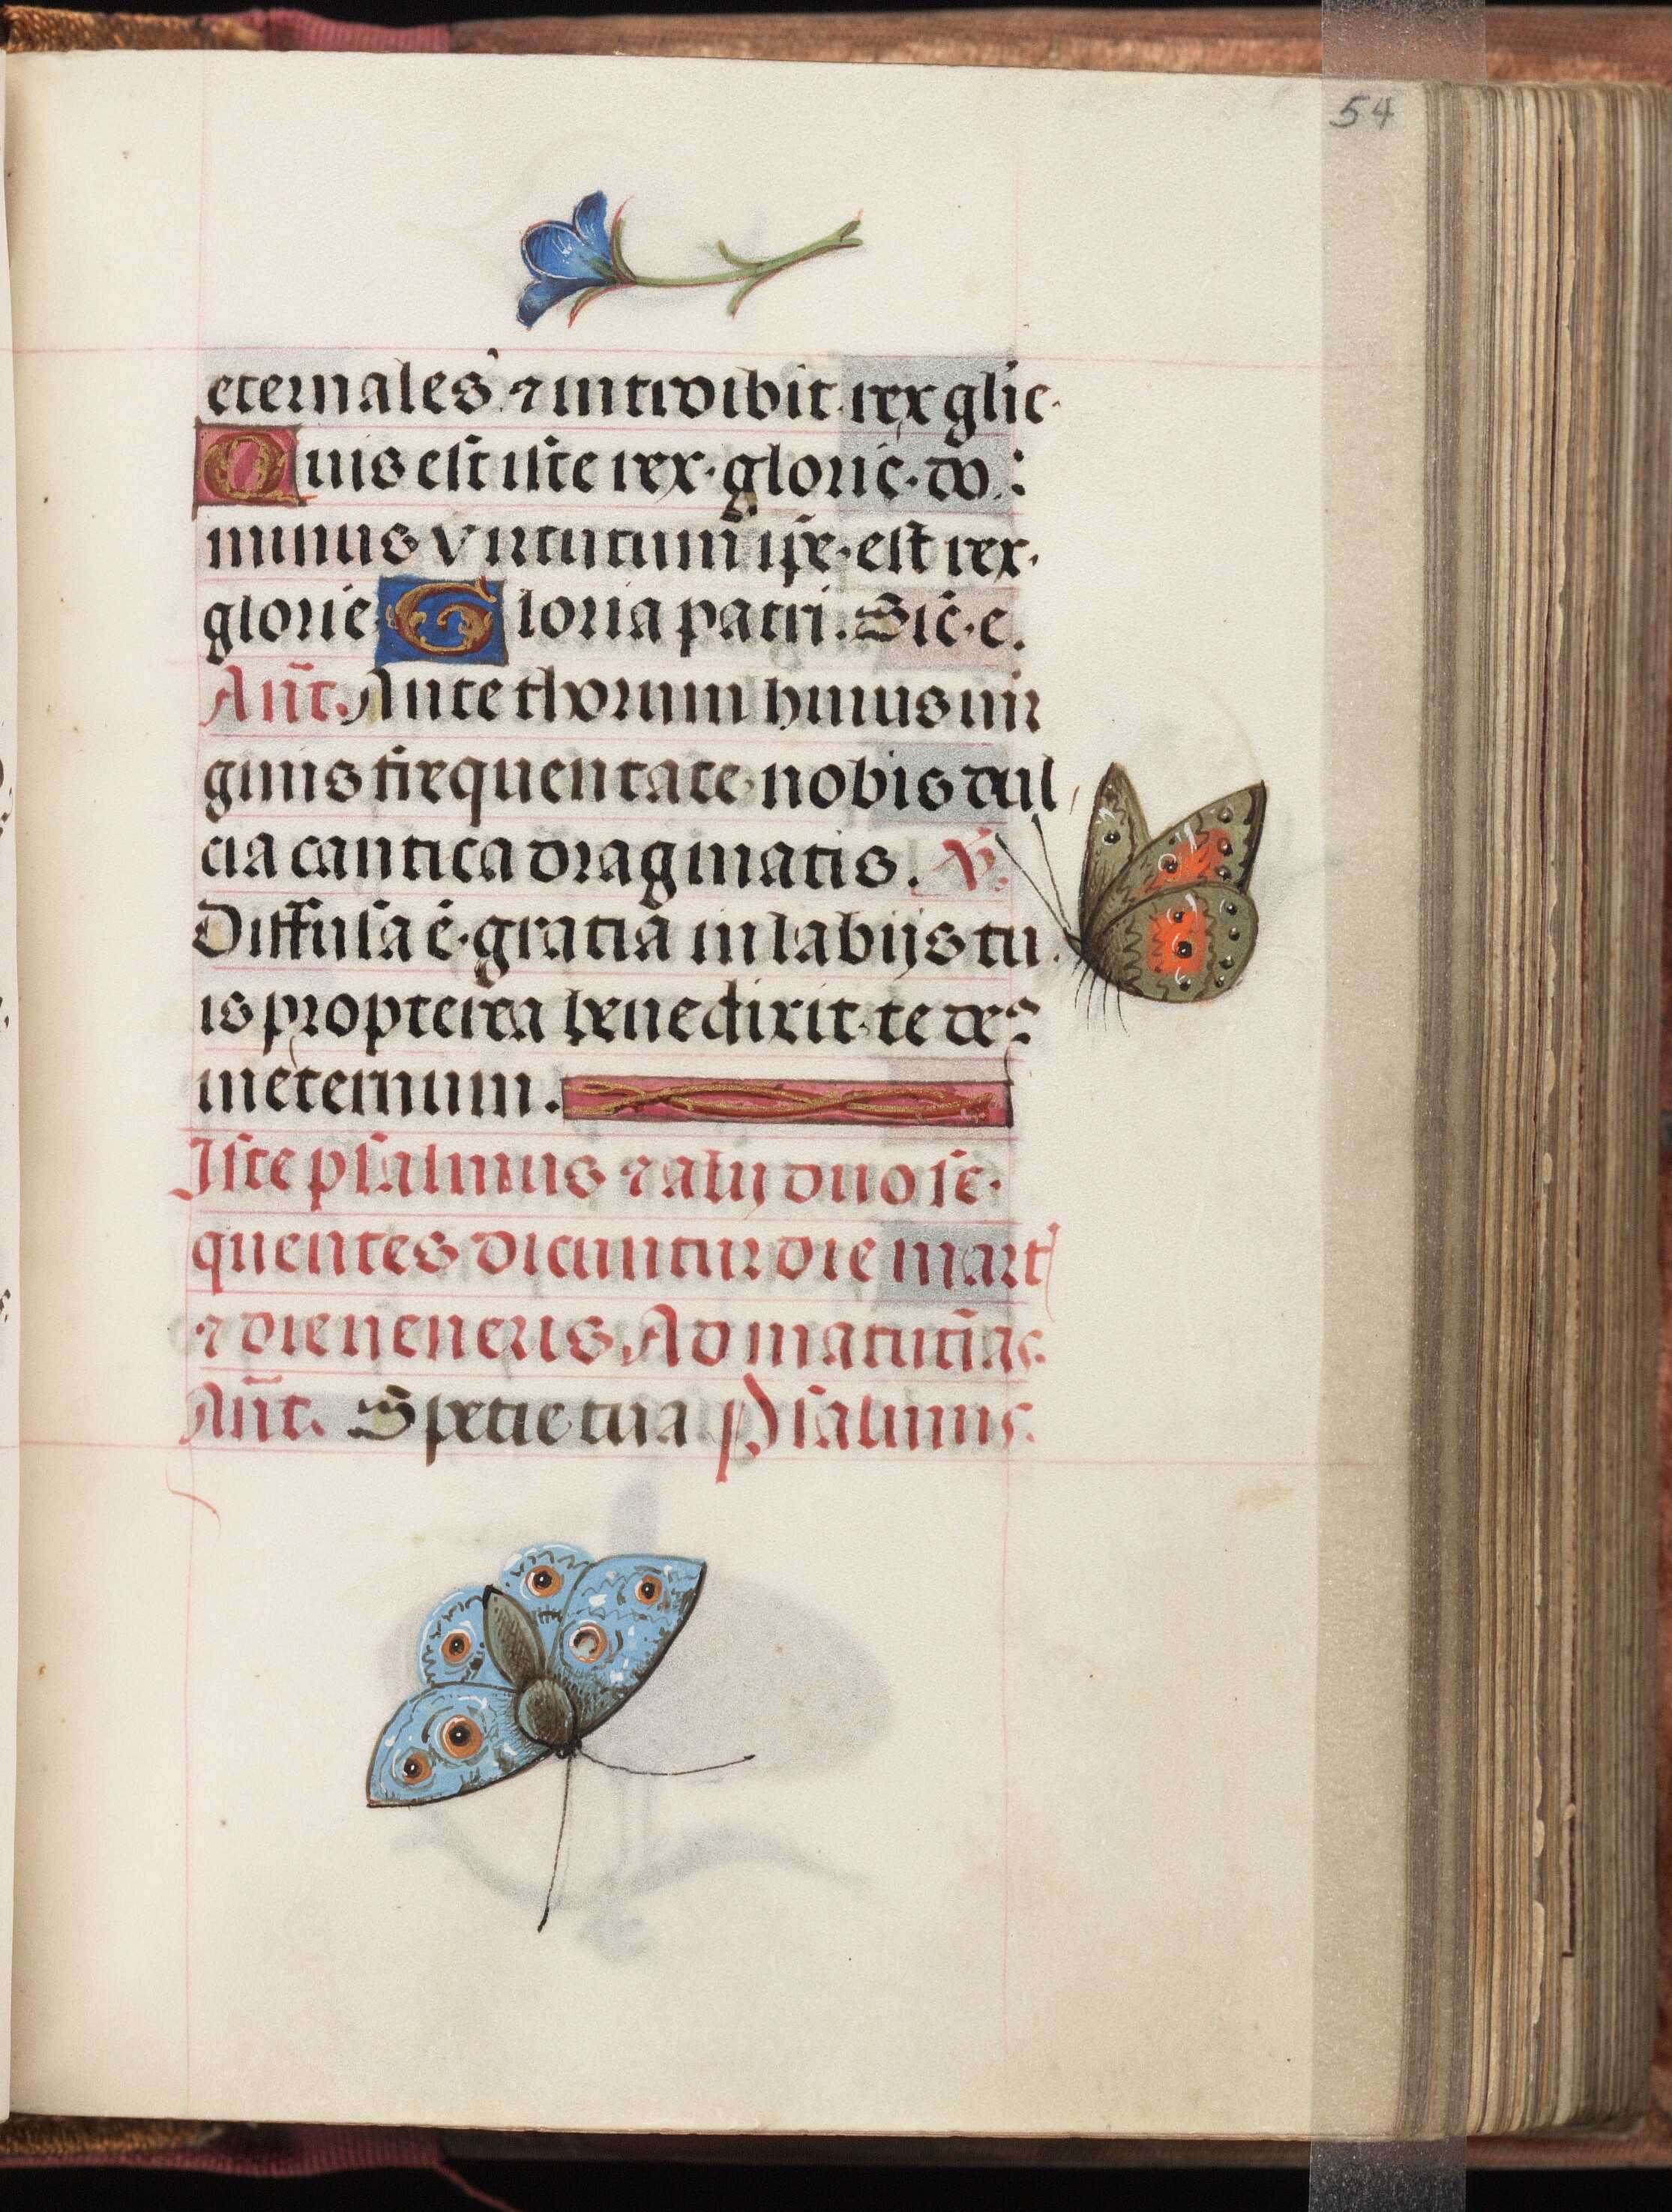 54
eternales ⁊ introibit rex glie·
Quis est iste rex· glorie· do
minus virtutum ip̃e· est rex·
glorie Gloria patri. Sic̃· e.
Añt. Ante thorum huius uir
ginis frequentate nobis dul
cia cantica dragmatis. ℣.
Diffusa ē· gratia in labijs tu
is propterea benedixit te deꝰ
in eternum.
Iste psalmus ⁊ alij duo se·
quentes dicuntur die mart
⁊ die ueneris. Ad matutinas·
Añt. Spetie tua Psalmus.